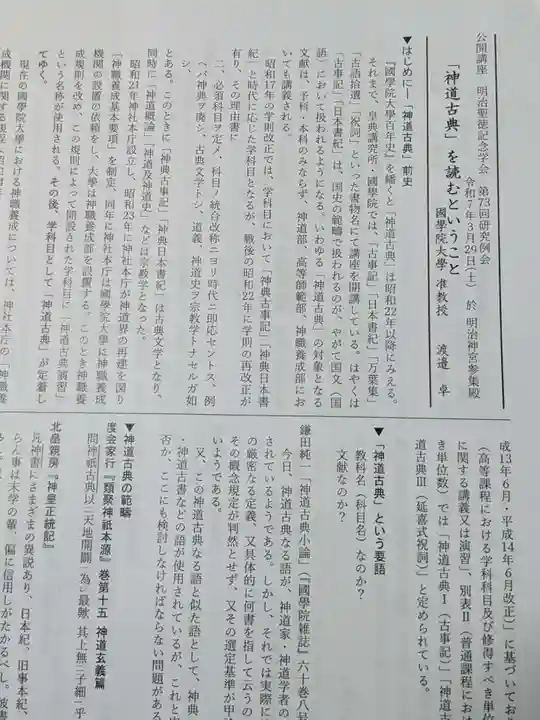 公開講座 明治聖徳記念学会 第73回研究例会
令和7年3月29日(土) 於 明治神宮参集殿
「神道古典」を読むということ
國學院大學 准教授 渡邉 卓
▼はじめに―「神道古典」前史
『國學院大學百年史』を繙くと「神道古典」は昭和22年以降にみえる。
それまで、皇典講究所・國學院では、「古事記」「日本書紀」「万葉集」
「古語拾遺」「祝詞」といった書物名にて講座を開講している。はやくは
「古事記」「日本書紀」は、国史の範疇で扱われるのが、やがて国文(国
語)において扱われるようになる。いわゆる「神道古典」の対象となる
文献は、予科・本科のみならず、神道部、高等師範部、神職養成部にお
いても講義される。
昭和17年の学則改正では、学科目において「神典古事記」「神典日本書
紀」と時代に応じた学科目となるが、戦後の昭和22年に学則の再改正が
有り、その理由書に
二、必須科目ヲ定メ、科目ノ統合改称ニヨリ時代ニ即応セントス、例
ヘバ神典ヲ廃シ、古典文学トナシ、道義、神道史ヲ宗教学トナセルガ如
シ、
とある。このときに「神典古事記」「神典日本書紀」は古典文学となり、
同時に「神道概論」「神道及神道史」などは宗教学となった。
昭和21年神社本庁設立し、昭和23年に神社本庁が神道界の再建を図り
「神職養成基本要項」を制定、同年に神社本庁は國學院大學に神職養成
機関の設置の依頼をし、大學は神職養成部を設置する。このとき神職養
成規則を改め、この規則によって開設された学科目に「神道古典演習」
という名称が使用される。その後、学科目として「神道古典」が定着し
てゆく。
現在の國學院大學における神職養成については、神社本庁の「神職養
成機関に関する規程
成13年6月・平成14年6月改正)」に基づいてお
(高等課程における学科科目及び修得すべき単位
に関する講義又は演習」、別表Ⅱ(普通課程におけ
き単位数)では「神道古典Ⅰ(古事記)」「神道古
道古典Ⅲ(延喜式祝詞)」と定められている。
▼「神道古典」という要語
教科名(科目名)なのか?
文献なのか?
鎌田純一「神道古典小論」(『國學院雑誌』六十巻八号
今日、神道古典なる語が、神道家・神道学者の
されているようである。しかし、それでは実際に
の厳密なる定義、又具体的に何書を指して云うの
その概念規定が判然とせず、又その選定基準が甲
いようである。
又、この神道古典なる語と似た語として、神典
・神道古書などの語が使用されているが、これと
否か、ここにも検討しなければならない問題がある
▼神道古典の範疇
度会家行『類聚神祇本源』巻第十五 神道玄義篇
問神祇古典以二天地開闢一為二最歟、其上無二子細一乎
北畠親房『神皇正統記』
凡神書にさまざまの異説あり、日本紀、旧事本紀、
らん事は末学の輩、偏に信用しがたかるべし。彼書